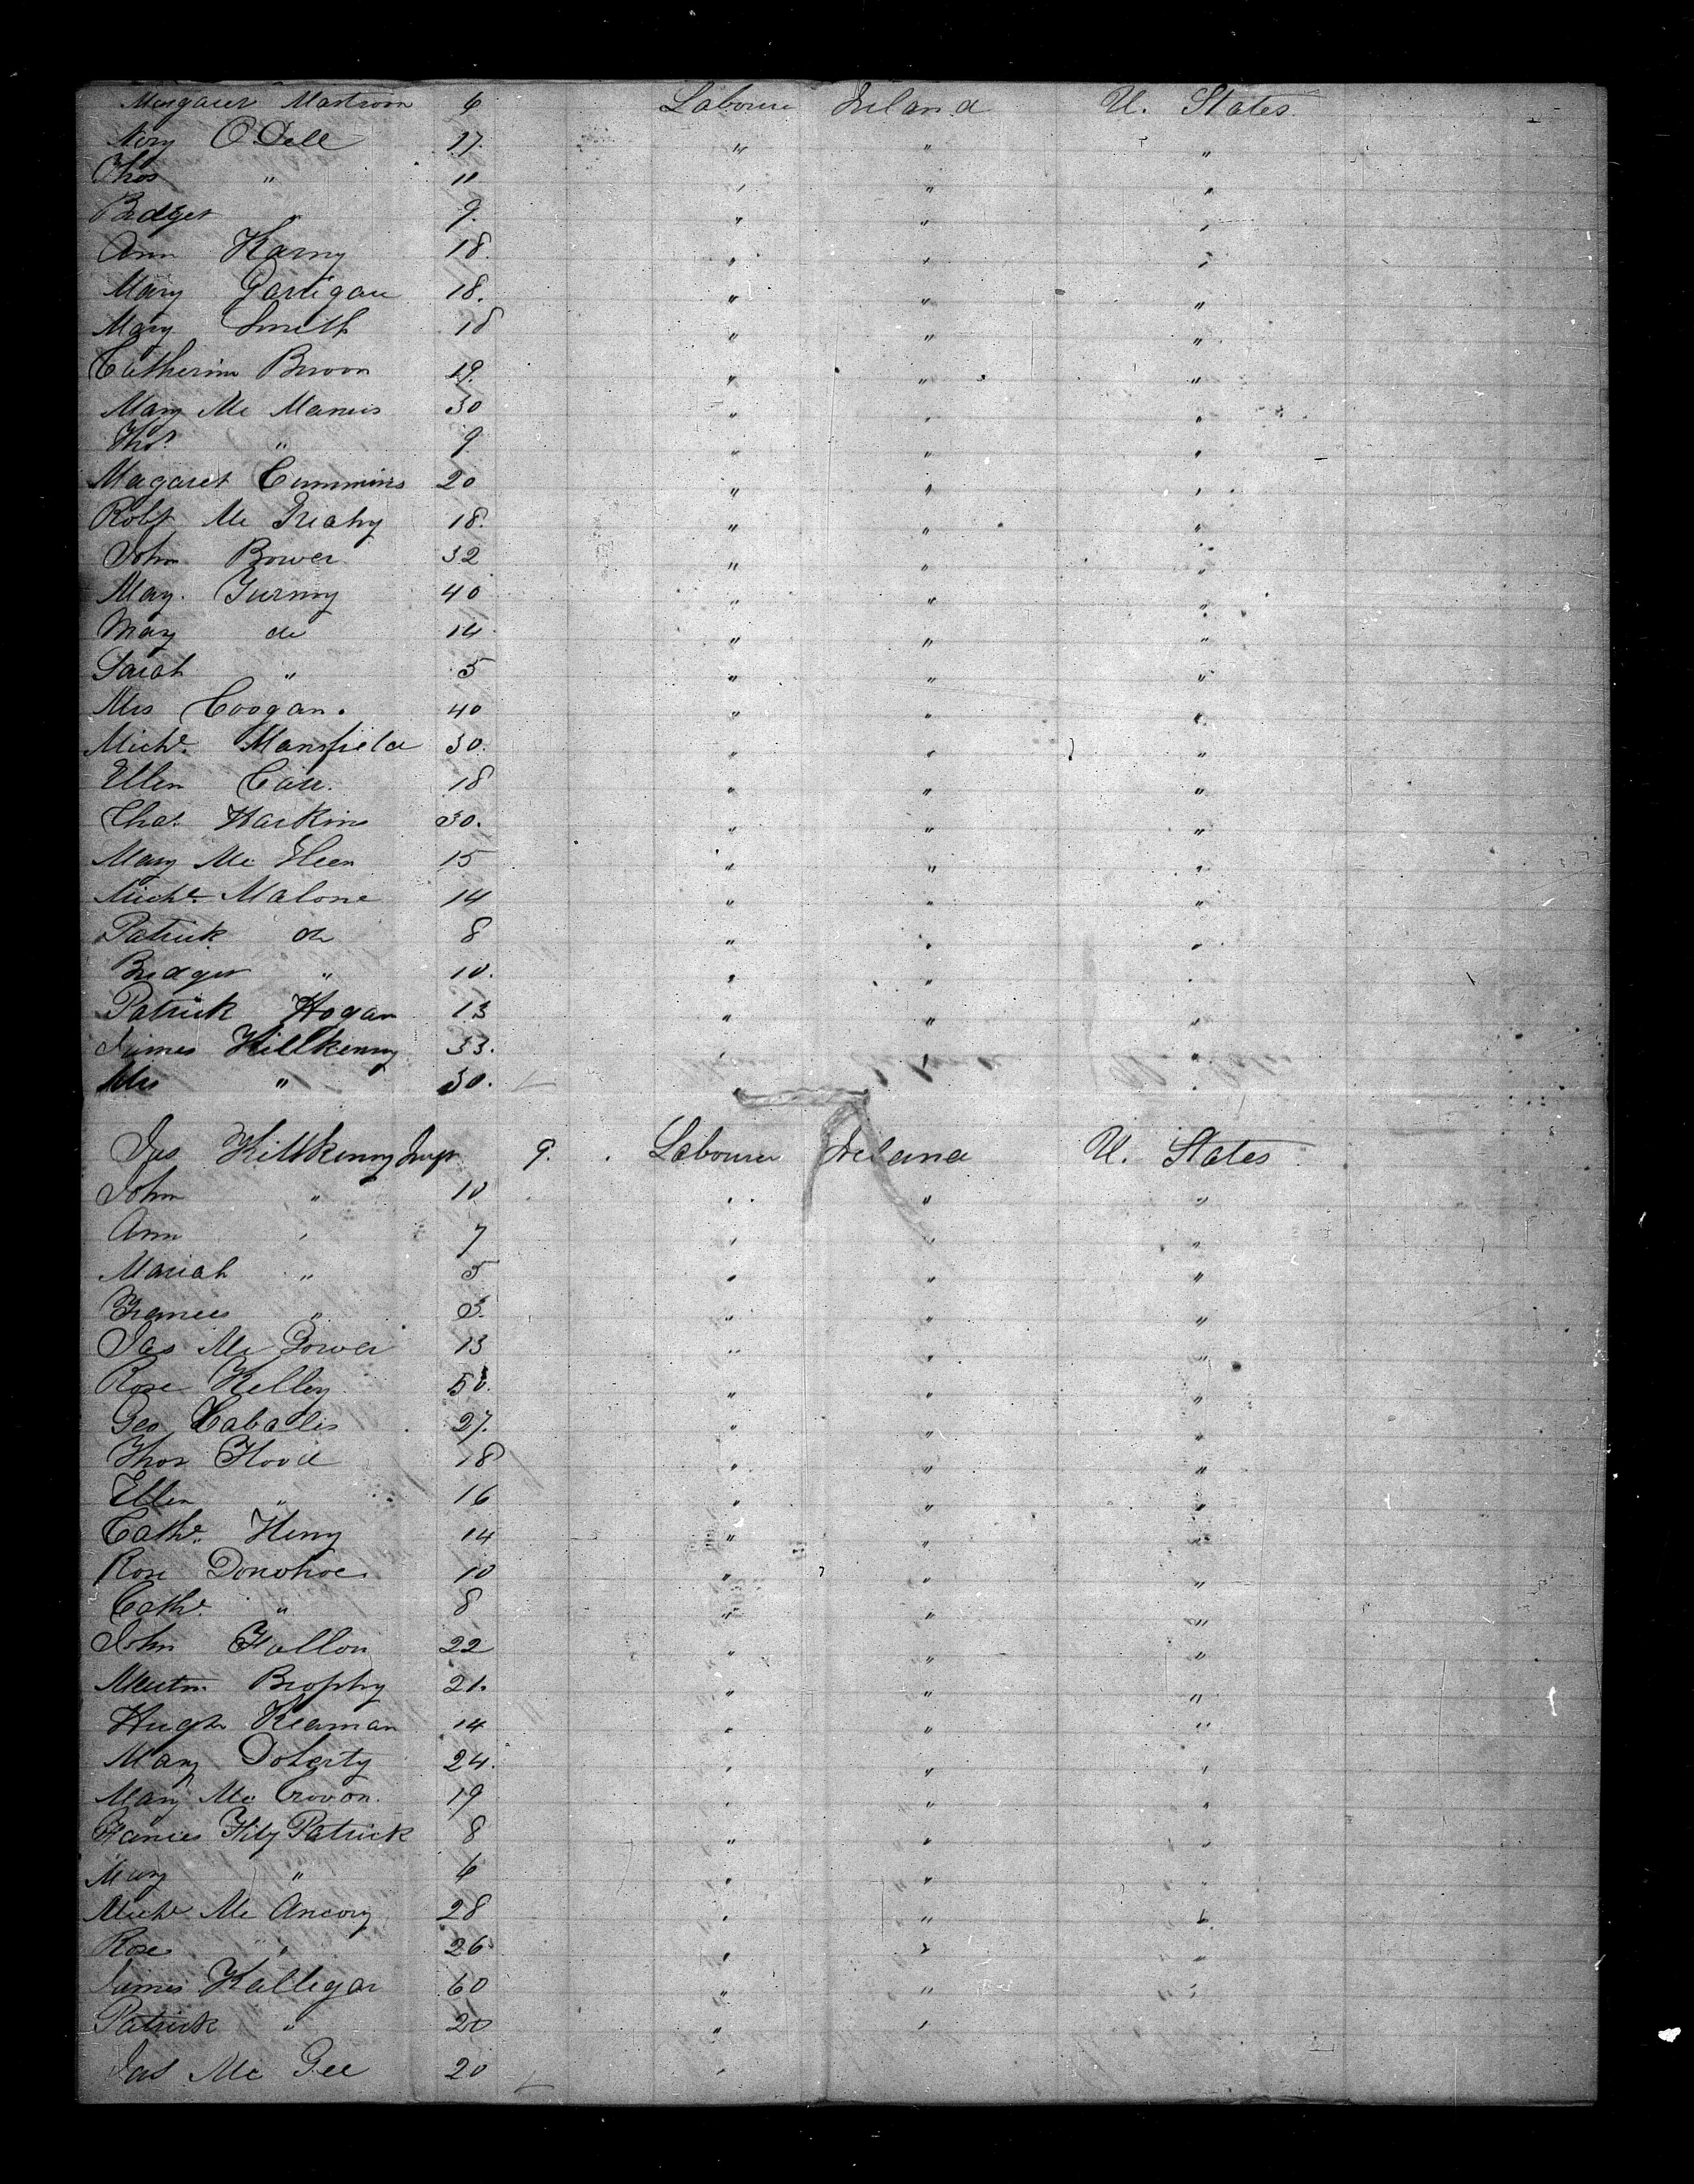 Margaret Martinon 6 Labourer Ireland U. States.
Mary O'Dell 17. " " "
Thos " 11 " " "
Bridget " 9. " " "
Ann Karny 18. " " "
Mary Gartigan 18. " " "
Mary Smith 18 " " "
Catherine Brown 19. " " "
Mary Mc Manus 30 " " "
Thos " 9 " " "
Magaret Cummins 20 " " "
Robt Mc 18. " " "
John Bower 32 " " "
Mary. Gurny 40 " " "
Mary do 14. " " "
Sarah " 5 " " "
Mrs Coogan. 40 " " "
Michl. Mansfield 30. " " "
Ellen Carr. 18 " " "
Chas. Harkins 30. " " "
Mary Mc 15 " " "
Michl Malone 14 " " "
Patrick do 8 " " "
Bridget " 10. " " "
Patrick Hogan 13 " " "
James Killkenny 33. " " "
Mrs " 30. "
Jas Killkenny Jungr 9. Labourer Ireland U. States.
John " 10 " " "
Ann " 7 " " "
Mariah " 5 " " "
Frances " 3. " " "
Jas Mc Gower 13 " " "
Rose Kelley 50. " " "
Geo 27. " " "
Thos Flood 18 " " "
Ellen " 16 " " "
Cathe. Henry 14 " " "
Rose Donohoe 10 " " "
Cathe. " 8 " " "
John Fallon 22 " " "
Brophy 21. " " "
Hugh Kiernan 14 " " "
Mary Doherty 24. " " "
Mary Mc 19 " " "
Frances Fitz Patrick 8 " " "
Mary " 6 " " "
Michl Mc 28 " " "
Rose " 26 " " "
James Kalligar 60 " " "
Patrick " 20 " "
Jas Mc Gee 20 "